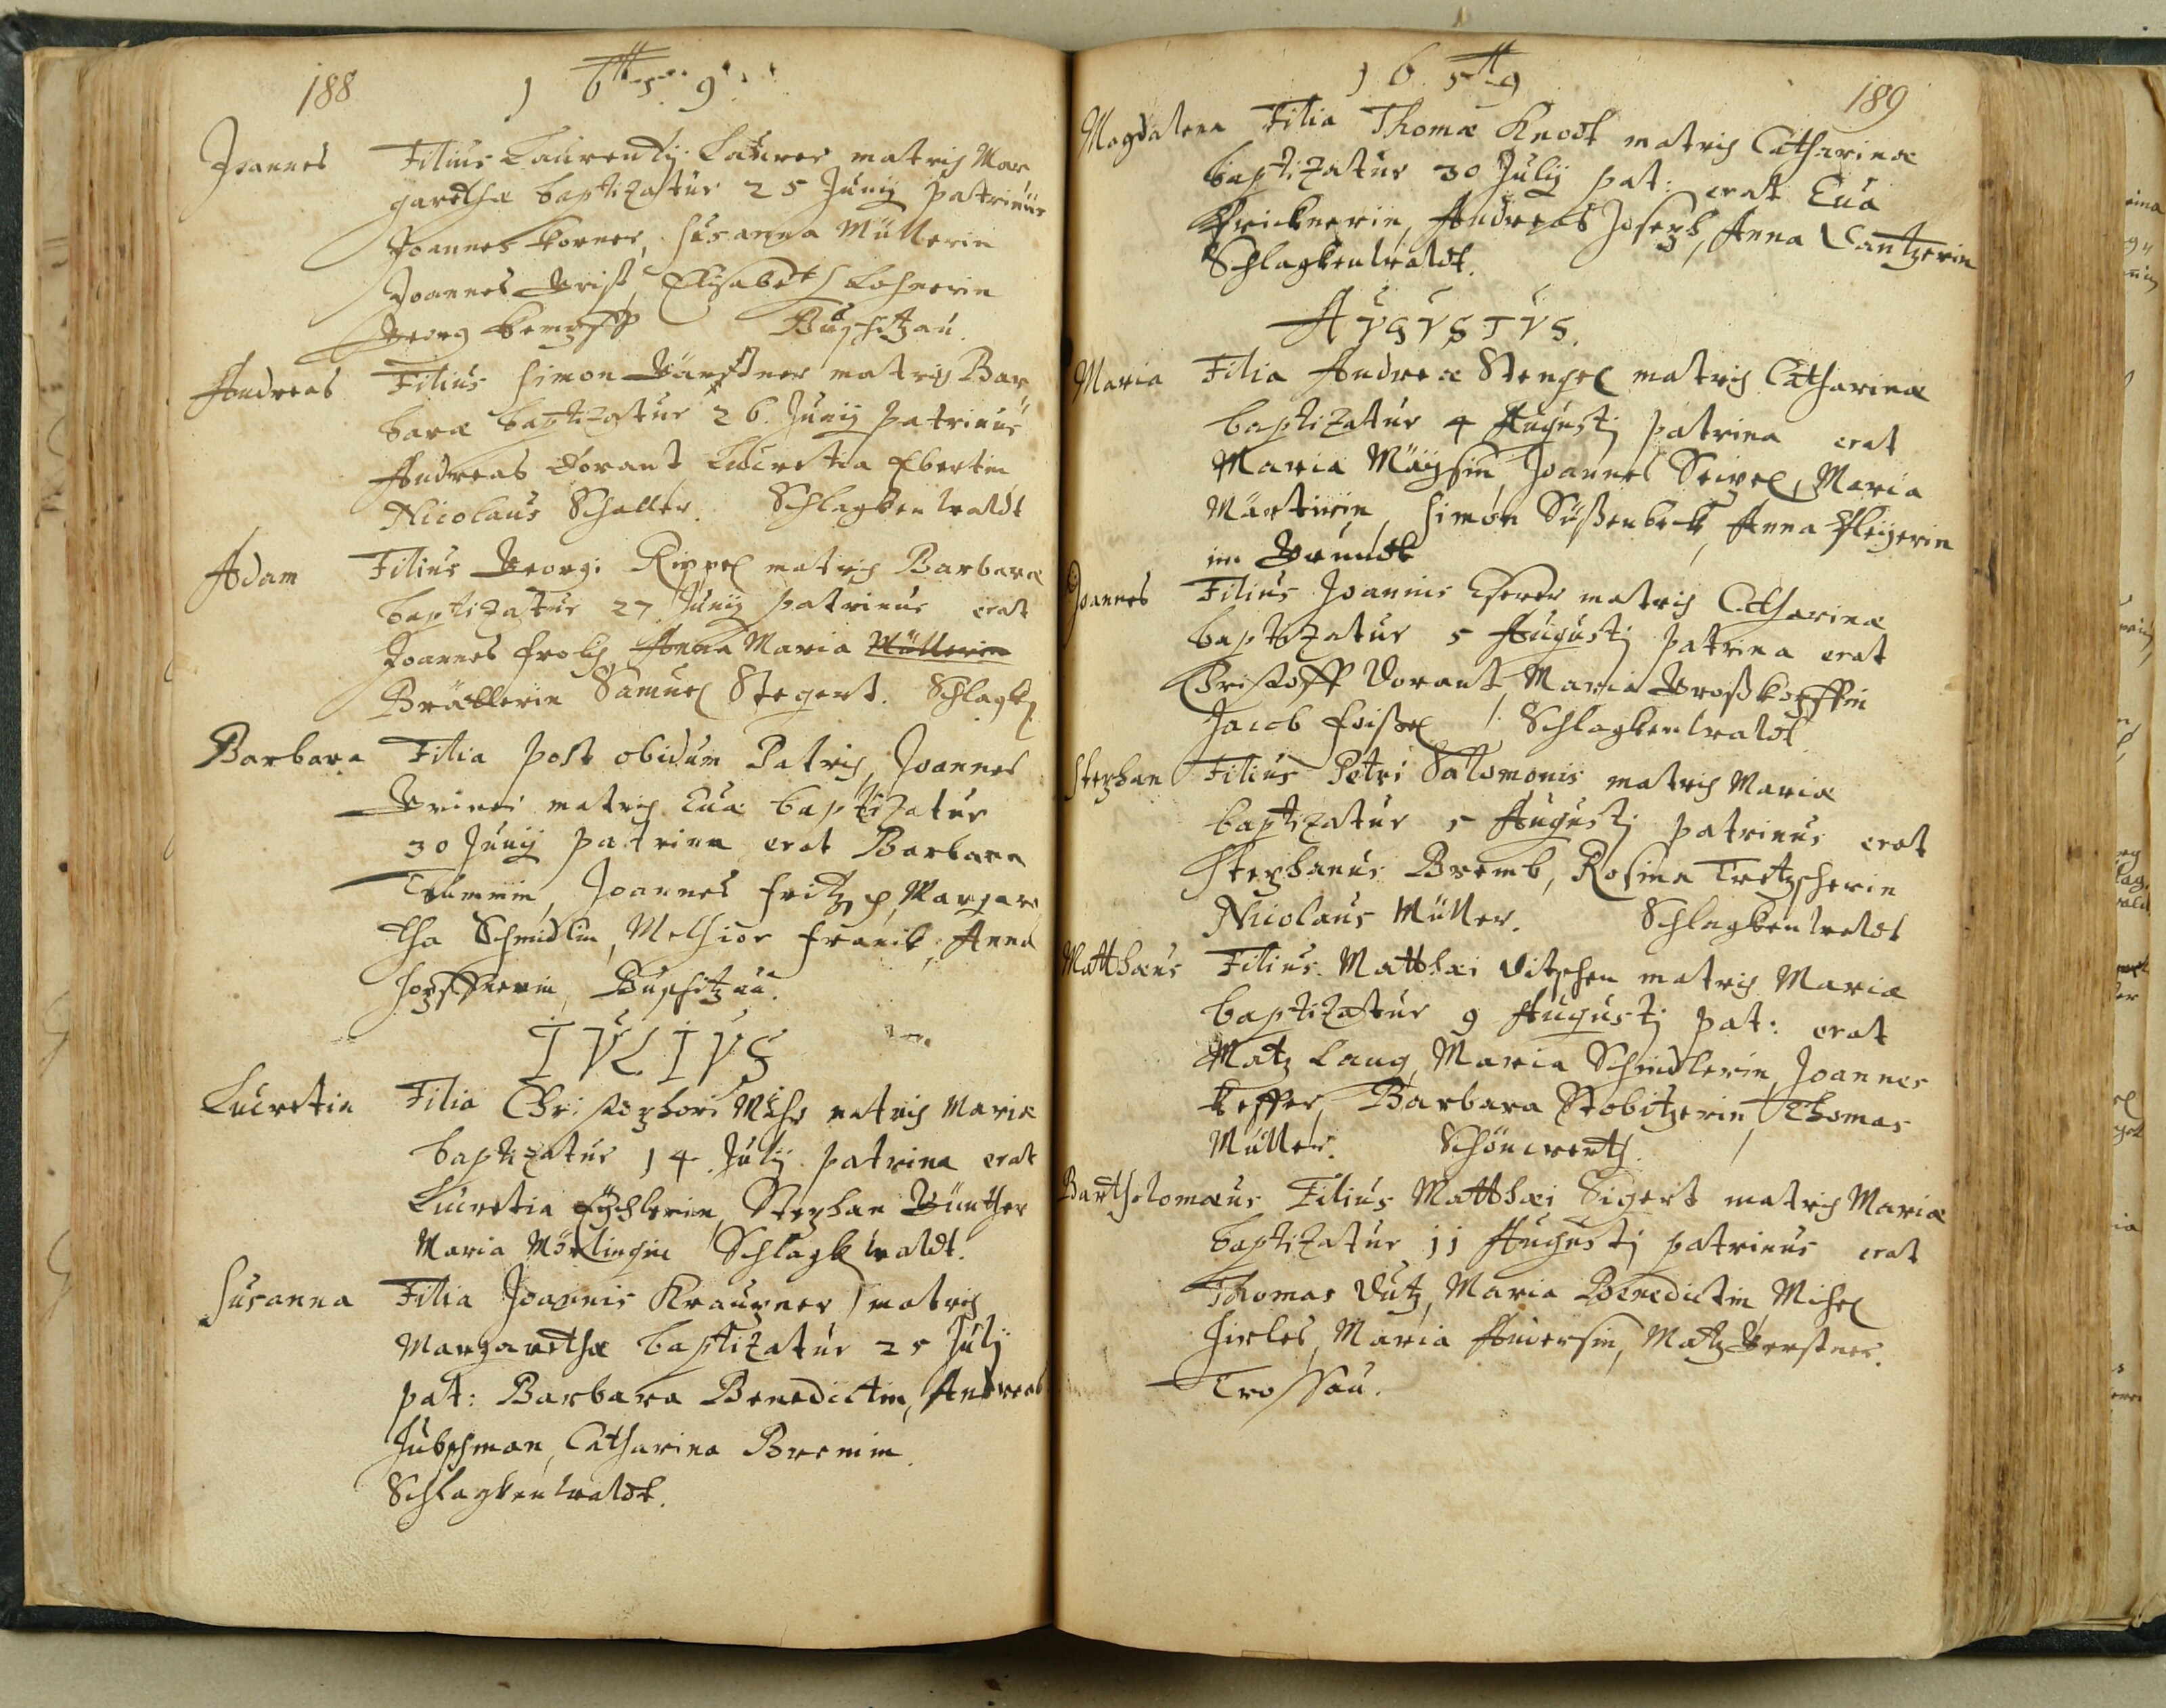 188
1659
Joannes Filius Laurentij Laürer matris Mar
garethæ baptizatur 25 Junij patrinus
Joannes Korner, Susanna Müllerin
Joannes Grist, Elisabeth Lohnerin
Georg Buschitzau.
Andreas Filius Simon matris Bar
baræ baptizatur 26. Junij patrinus
Andreas Dorant Lucretia Ebertin
Nicolaus Schaller. Schlagkenwaldt
Adam Filius Georgi Rippel matris Barbaræ
baptizatur 27 Junij patrinus erat
Joannes Frolich, Anna Maria Müllerin
Samuel Stegert. Schlagk
Barbara Filia post obidum Patris, Joannes
matris Euæ baptizatur
30 Junij patrina erat Barbara
Joannes Fritz, Margare
tha Schmidlin, Melhior Franik, Anna
Buschitzau.
IVLIVS
Lucretia Filia Christophori matris Mariæ
baptizatur 14. Julij patrina erat
Lucretia Stephan Günther
Maria Schlagkwaldt.
Susanna Filia Joannis Krauzner matris
Margarethæ baptizatur 25 Julij
pat: Barbara Benedictin, Andreas
Hubschman, Catharina Bremin.
Schlagkenwaldt.
1659
189
Magdalena Filia Thomæ Knodt matris Catharinæ
baptizatur 30 Julij pat: erat Eua
Andreas Joseph, Anna Dantzerin
Schlagkenwaldt.
AVGVSTVS.
Maria Filia Andreæ Stengel matris Catharinæ
baptizatur 4 Augustj patrina erat
Maria Joannes Seipel, Maria
Simon Süßenbeck, Anna
im Grundt
Joannes Filius Joannis matris Catharinæ
baptizatur 5 Augustj patrina erat
Christoff Dorant, Maria Großkopffin
Jacob Schlagkenwaldt
Stephan Filius Petri Salomonis matris Mariæ
baptizatur 5 Augustj patrinus erat
Stephanus Bremb, Rosina Tretzscherin
Nicolaus Müller. Schlagkenwaldt
Matthæus Filius Matthæi Ditschen matris Mariæ
baptizatur 9 Augustj pat: erat
Matz Lang, Maria Schmidlerin, Joannes
Barbara Stobitzerin, Thomas
Müller. Schönwerth.
Bartholomæus Filius Matthæi Sigert matris Mariæ
baptizatur 11 Augustj patrinus erat
Thomas Dutz, Maria Benedictin, Mihel
Hirles, Maria Matz Gerstner.
Trossau.